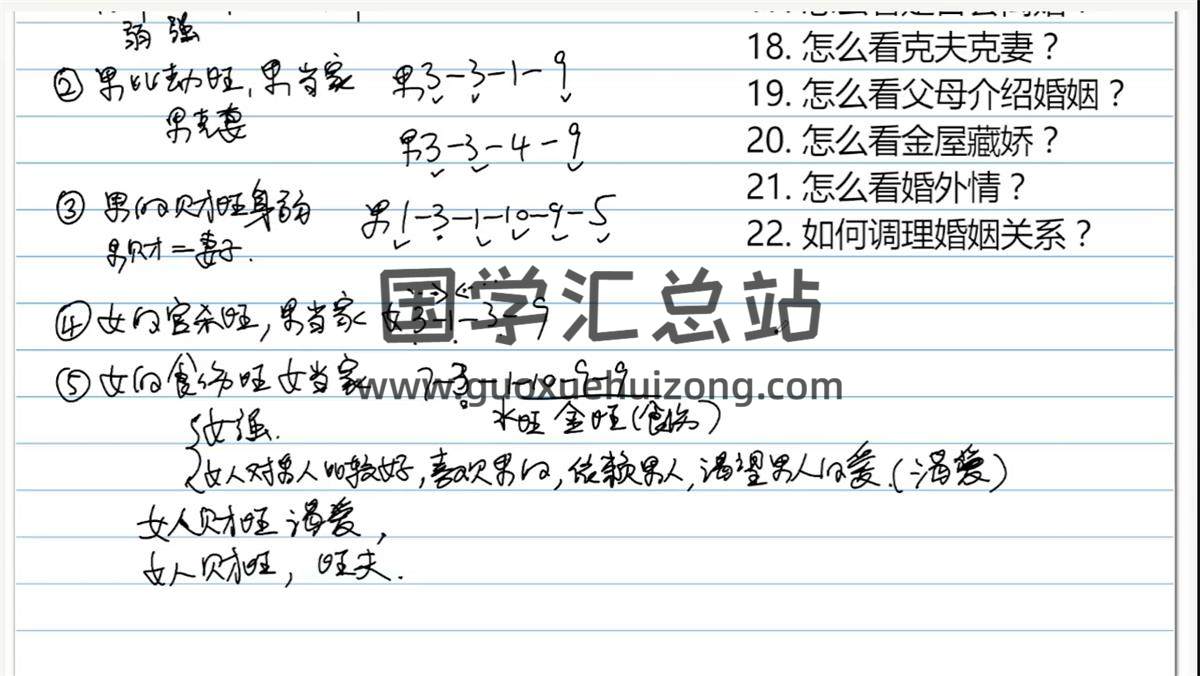 弱 强
② 男比劫旺, 男当家 男3-3-1-9
男克妻
男3-3-4-9
③ 男的财旺身弱 男1-3-1-10-9-5
男财=妻子.
④ 女的官杀旺, 男当家 女3-1-3-9
⑤ 女的食伤旺 女当家 7-3-1-10-9-9
水旺 金旺(食伤)
女强.
女人对男人比较好, 喜欢男的, 依赖男人, 渴望男人的爱.(渴爱)
女人财旺 渴爱,
女人财旺, 旺夫.
18. 怎么看克夫克妻？
19. 怎么看父母介绍婚姻？
20. 怎么看金屋藏娇？
21. 怎么看婚外情？
22. 如何调理婚姻关系？
国学汇总站
www.guoxuehuizong.com